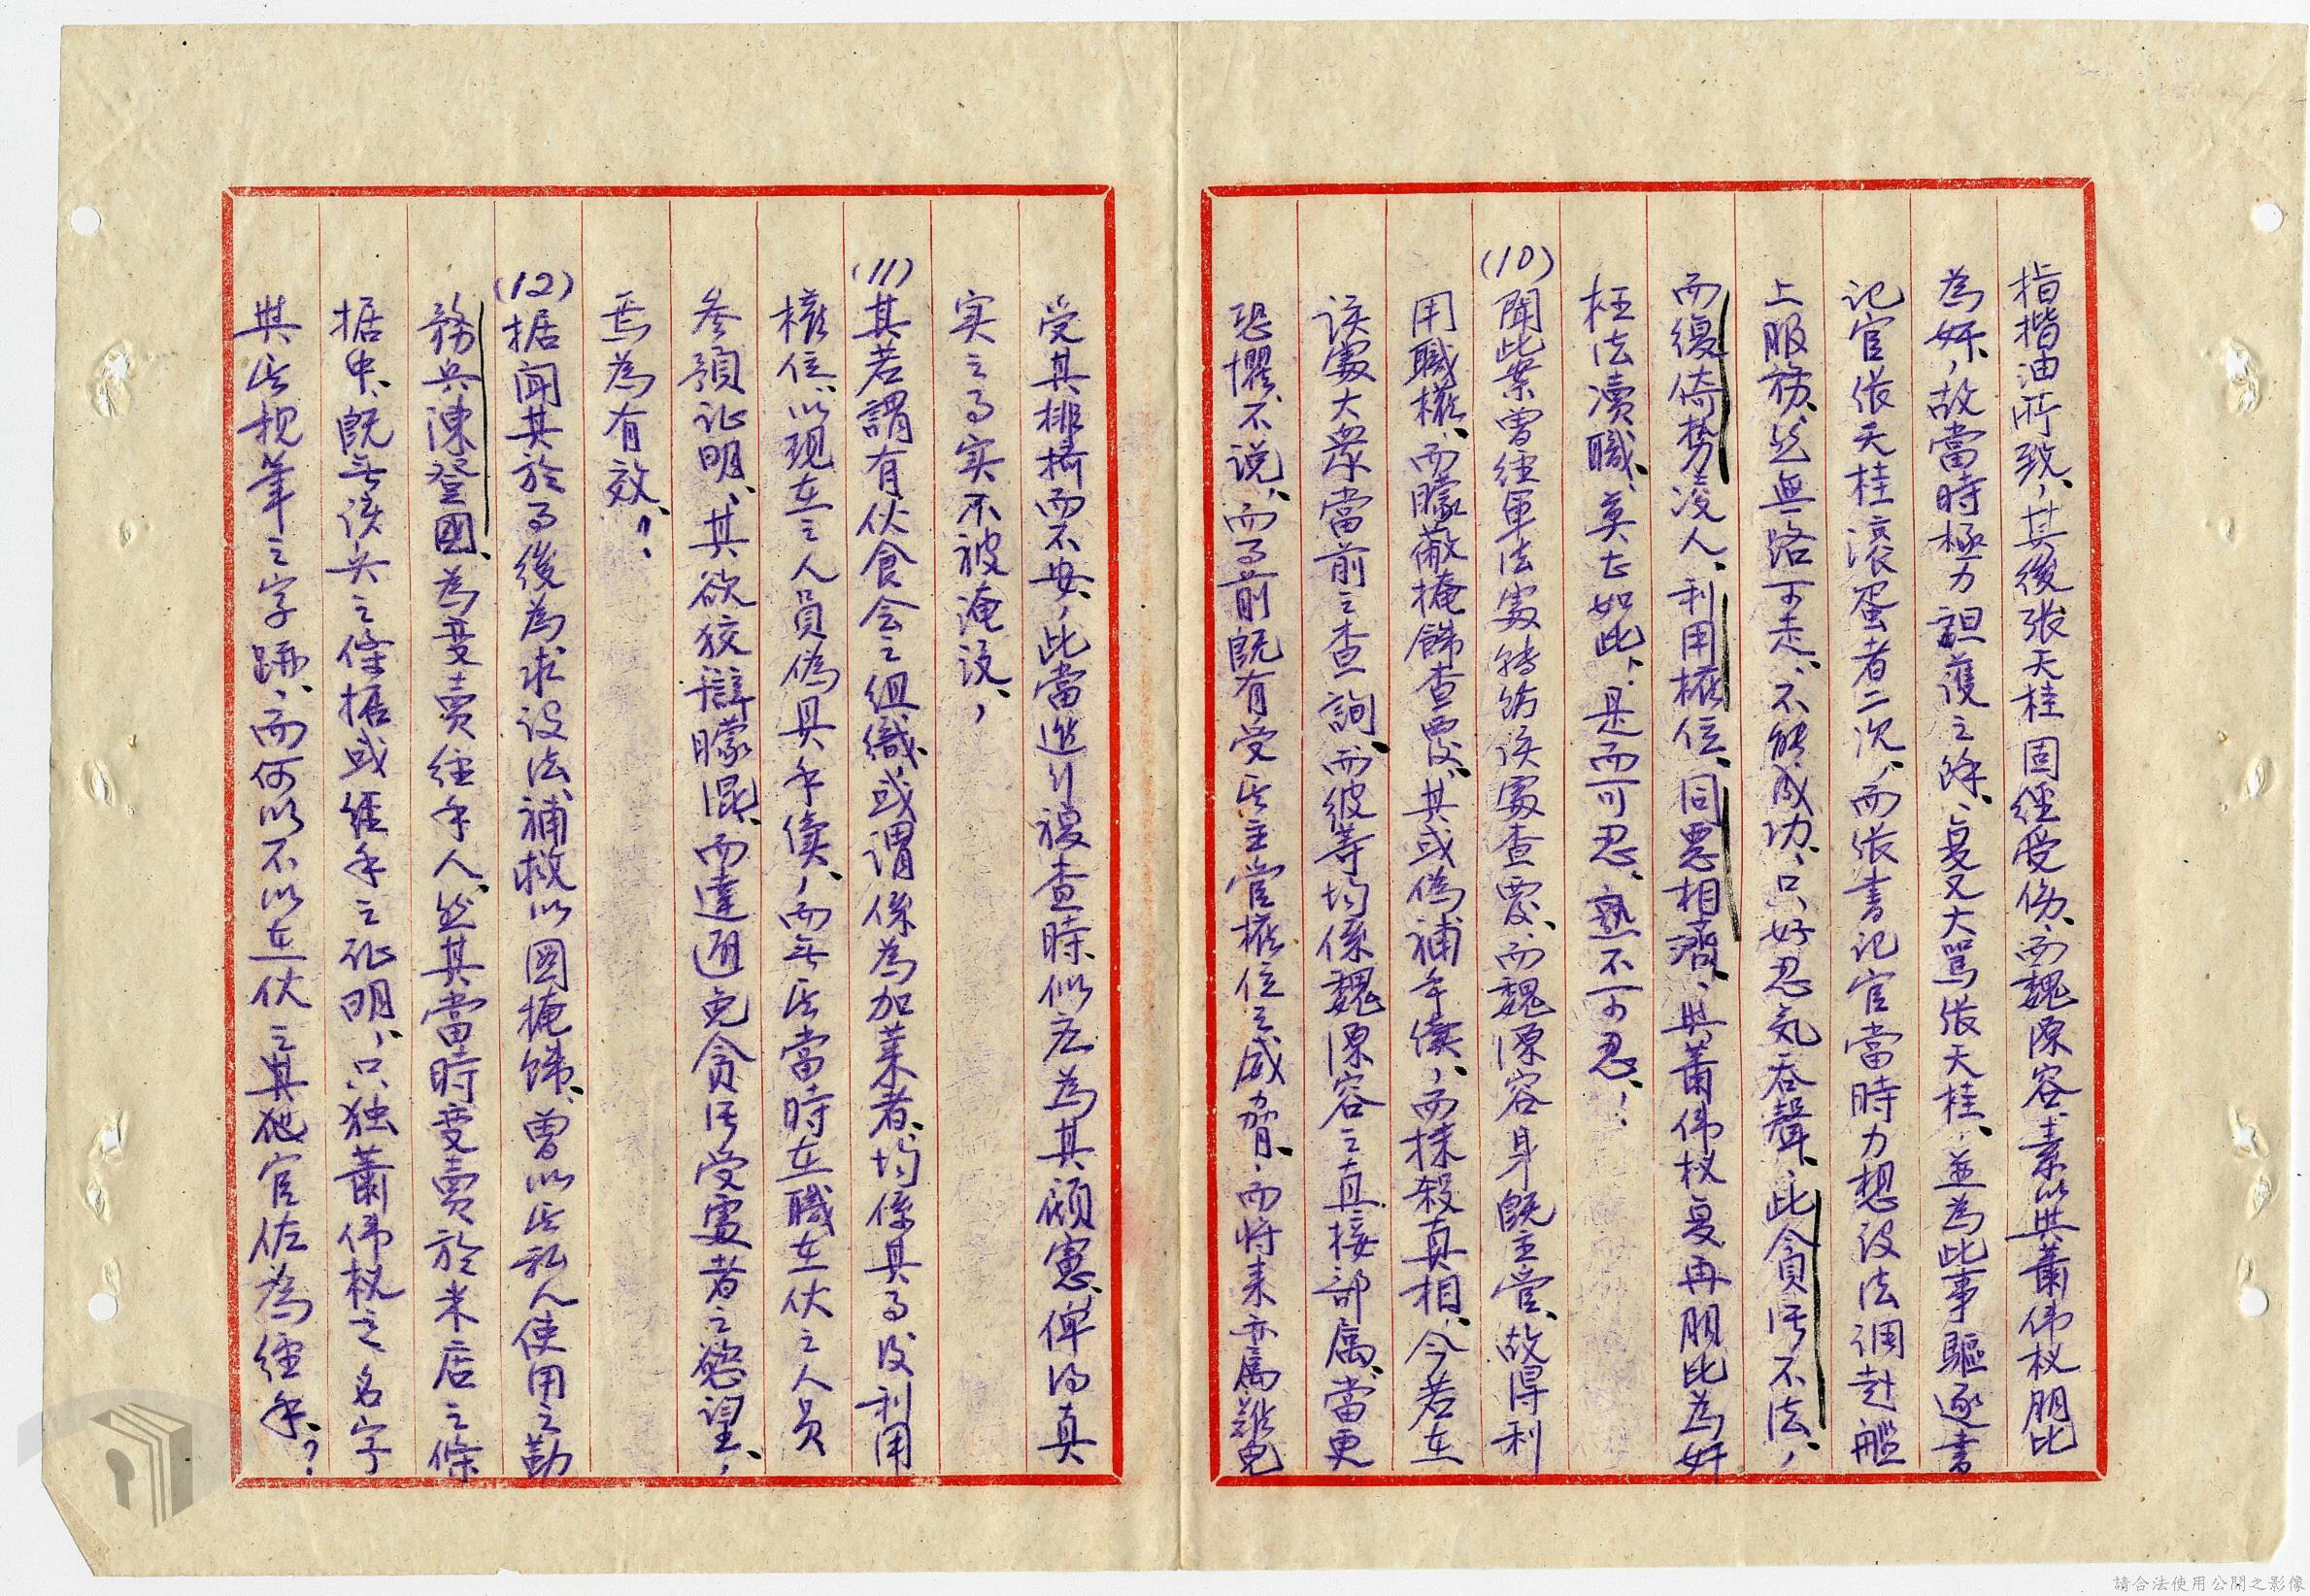 指揩油所致、其後張天桂固經受伤、而魏陳容、素以與蕭伟权朋比
為奸，故當時極力袒護之除、复又大罵張天桂、並為此事驅逐書
记官張天桂滾蛋者二次、而张書记官當時力想设法调赴艦
上服務、然無路可走、不能成功、只好忍気吞聲、此貪污不法，
而復倚势凌人、利用權位、同惡相濟、與蕭伟权复再朋比為奸
枉法瀆職、莫甚如此、是而可忍、熟不可忍！
(10)聞此案曾经軍法處转饬该處查覆、而魏陳容身既主管、故得利
用職權、而矇蔽掩飾查覆、其或偽補手續，而抹殺真相、今若在
该處大衆當前之查詢、而彼等均係魏陳容之直接部属、當更
恐懼不说、而了前既有受此主管權位之威脅、而将来亦属難免
受其排擠而不安，此當進行複查時、似应為其顧慮、俾得真
实之了实不被淹没，
(11)其若謂有伙食会之组織、或谓係為加菜者、均係其了後利用
權位、以现在之人員偽具手續，而無此當時在職在伙之人員
參預证明、其欲狡辯矇混、而達避免贪污受處者之慾望、
焉為有效？
(12)据闻其於了後為求设法補救以圖掩飾、曾以此私人使用之勤
務兵陳登國、為变卖经手人、然其當時变賣於米店之條
据中、既無该兵之條据或經手之证明，只独蕭伟权之名字
與此親筆之字跡、而何以不以在伙之其他官佐為经手？
請合法使用公開之影像